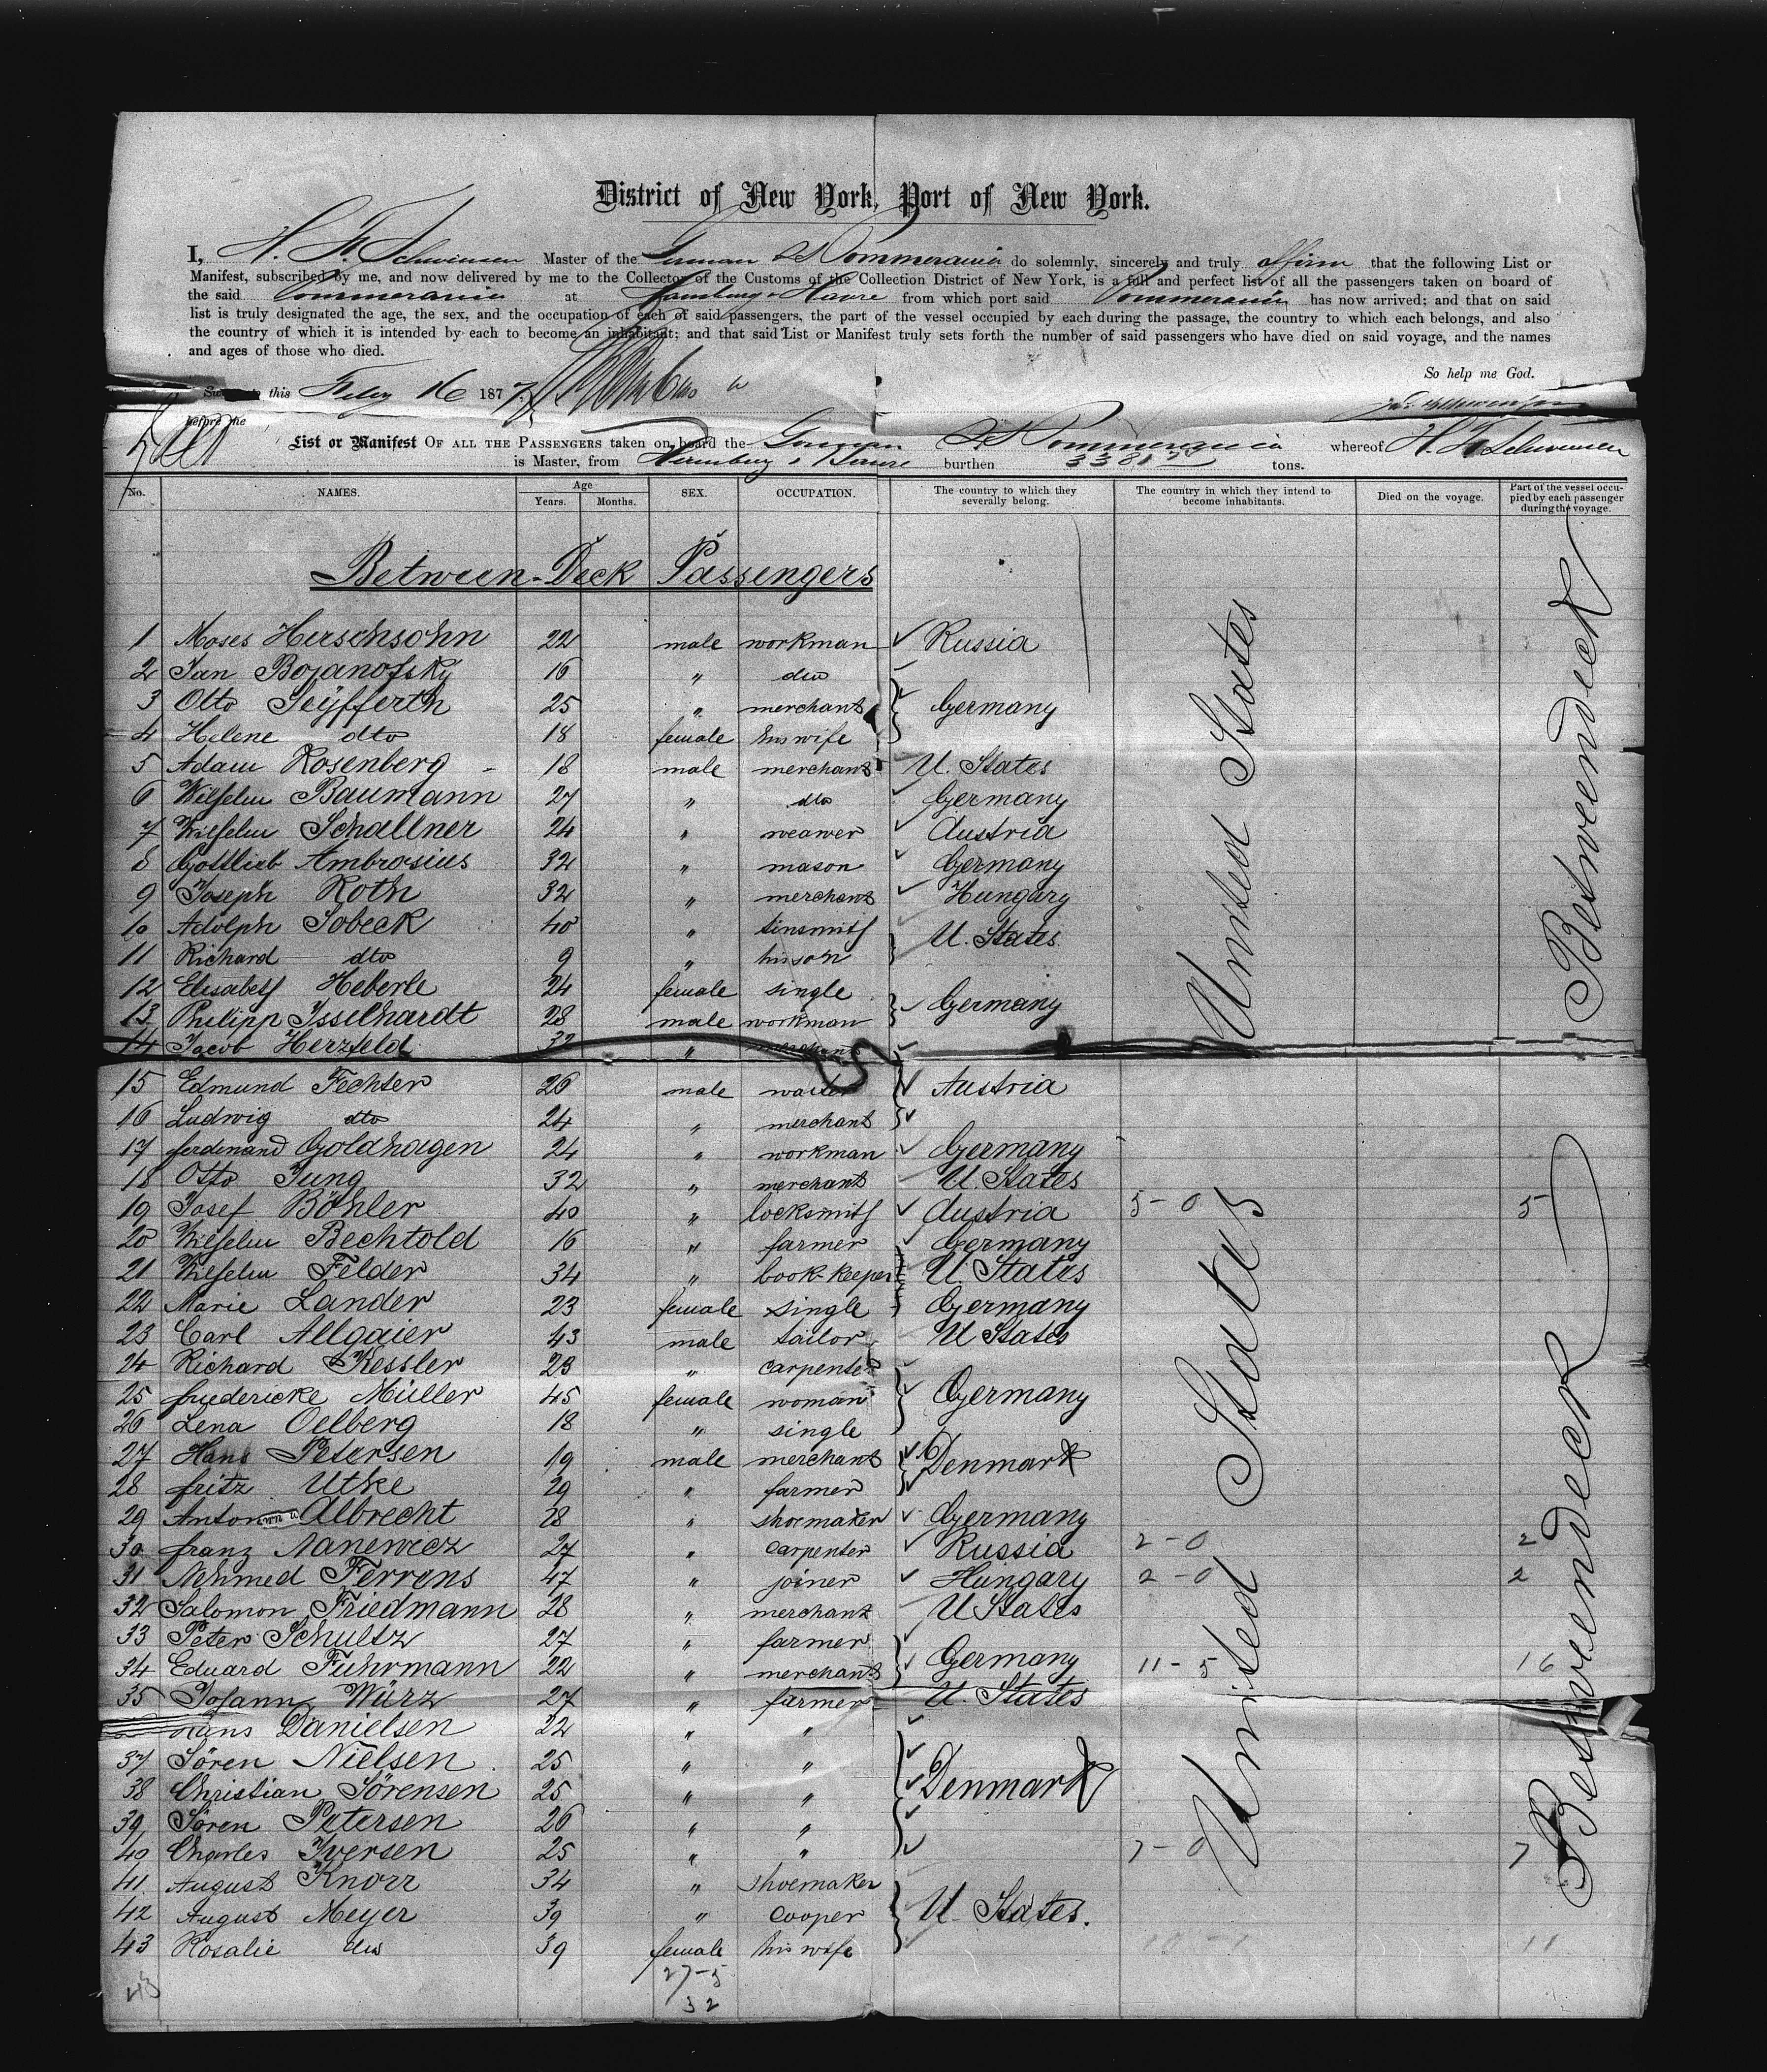 District of New York, Port of New York.
I, H. F. Schwensen Master of the German SS Pommerania do solemnly, sincerely and truly affirm that the following List or
Manifest, subscribed by me, and now delivered by me to the Collector of the Customs of the Collection District of New York, is a full and perfect list of all the passengers taken on board of
the said Pommerania at Hamburg & Havre from which port said Pommerania has now arrived; and that on said
list is truly designated the age, the sex, and the occupation of each of said passengers, the part of the vessel occupied by each during the passage, the country to which each belongs, and also
the country of which it is intended by each to become an inhabitant; and that said List or Manifest truly sets forth the number of said passengers who have died on said voyage, and the names
and ages of those who died.
So help me God.
this Feby 16 1877
before me
List or Manifest OF ALL THE PASSENGERS taken on board the German SS Pommerania whereof H. F. Schwensen
is Master, from Hamburg & Havre burthen tons.
No. NAMES. Age Years. Months. SEX. OCCUPATION. The country to which they severally belong. The country in which they intend to become inhabitants. Died on the voyage. Part of the vessel occupied by each passenger during the voyage.
Between-Deck Passengers
1 Moses Herschsohn 22 male workman Russia
2 Jan Bojanofsky 16 " dto
3 Otto Seyfferth 25 " merchant Germany
4 Helene dto 18 female his wife
5 Adam Rosenberg 18 male merchant U. States
6 Wilhelm Baumann 27 " dto Germany
7 Wilhelm Schallner 24 " weawer Austria
8 Gottlieb Ambrosius 32 " mason Germany
9 Joseph Roth 32 " merchant Hungary
10 Adolph Sobeck 40 " tinsmith U. States
11 Richard dto 9 " his son
12 Elisabeth Heberle 24 female single Germany
13 Philipp Isselhardt 28 male workman
14 Jacob Herzfeld 32 " merchant
15 Edmund Fechter 26 male waiter Austria
16 Ludwig dto 24 " merchant
17 Ferdinand Goldhagen 24 " workman Germany
18 Otto Jung 32 " merchant U. States
19 Josef Böhler 40 " locksmith Austria 5-0 5
20 Wilhelm Bechtold 16 " farmer Germany
21 Wilhelm Felder 34 " book-keeper U. States
22 Marie Lander 23 female single Germany
23 Carl Allgaier 43 male tailor U States
24 Richard Kessler 23 " carpenter
25 Friedericke Müller 45 female woman Germany
26 Lena Oelberg 18 " single
27 Hans Petersen 19 male merchant Denmark
28 Fritz Utke 29 " farmer
29 Anton Albrecht 28 " shoemaker Germany
30 Franz Nanewicz 27 " carpenter Russia 2-0 2
31 Nehmed Ferrens 47 " joiner Hungary 2-0 2
32 Salomon Friedmann 28 " merchant U States
33 Peter Schultz 27 " farmer
34 Eduard Fuhrmann 22 " merchant Germany 11-5 16
35 Johann Würz 27 " farmer U. States
Hans Danielsen 22 " "
37 Sören Nielsen 25 " "
38 Christian Sörensen 25 " " Denmark
39 Sören Petersen 26 " "
40 Charles Iversen 25 " " 7-0 7
41 August Knorr 34 " shoemaker
42 August Meyer 39 " cooper U. States.
43 Rosalie dto 39 female his wife 10-1 11
43
27-5
32
United States
United States
Betweendeck
Betweendeck